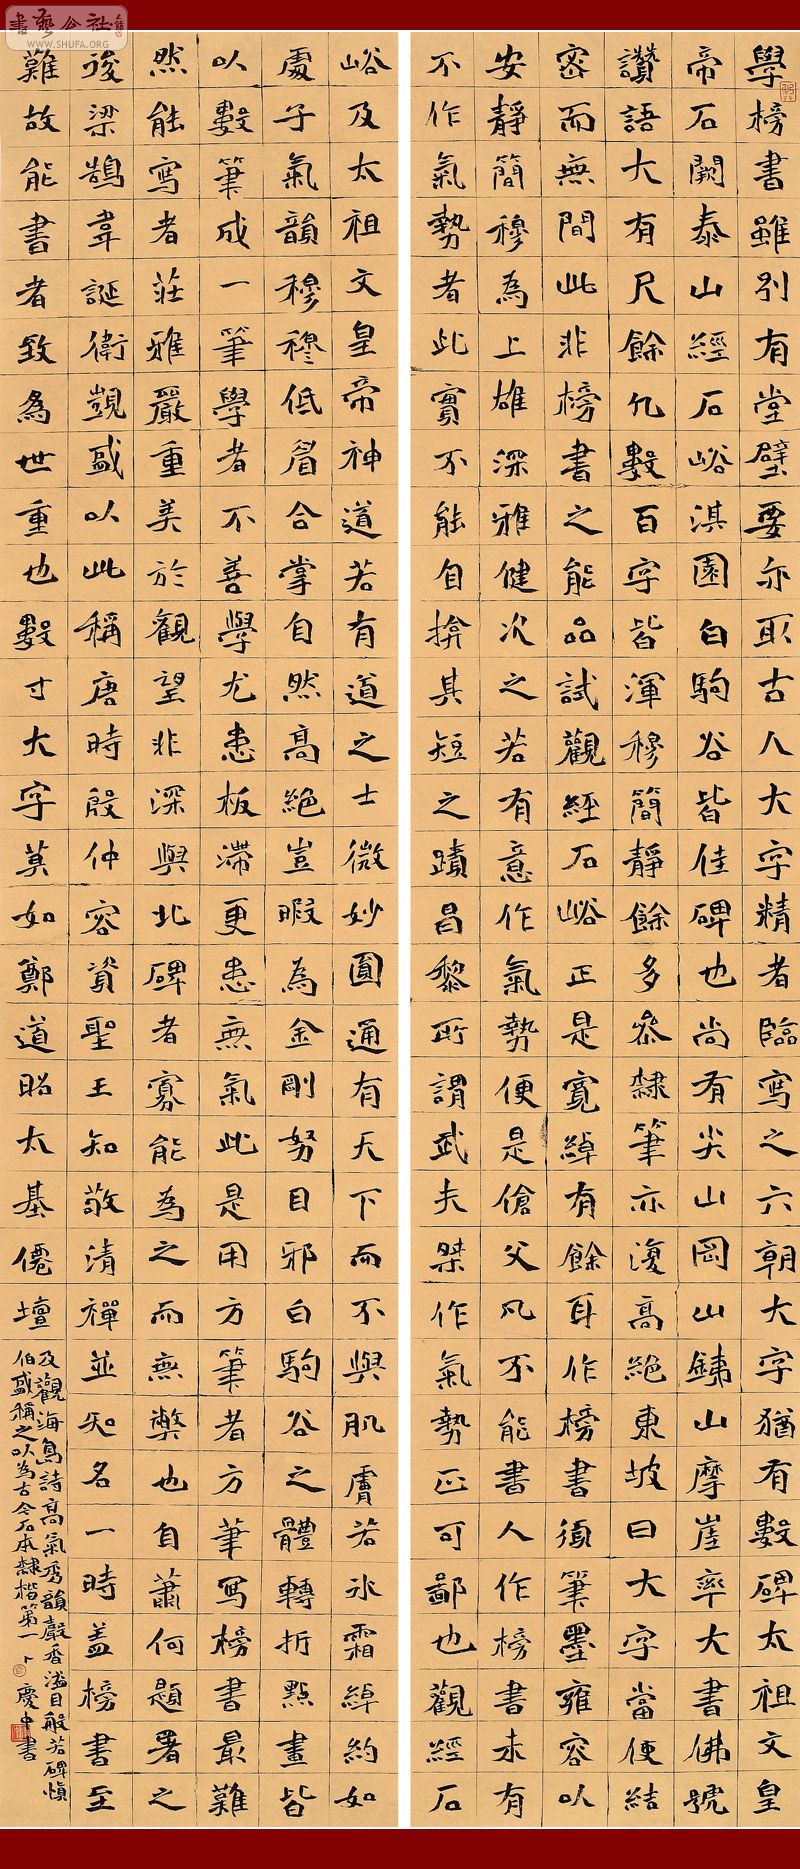 書藝公社
WWW.SHUFA.ORG
學榜書雖別有堂壁要亦取古人大字精者臨寫之六朝大字猶有數碑太祖文皇
帝石闕泰山經石峪淇園白駒谷皆佳碑也尚有尖山岡山鐵山摩崖率大書佛號
讚語大有尺餘凡數百字皆渾穆簡靜餘多參隸筆亦復高絕東坡曰大字當便結
密而無間此非榜書之能品試觀經石峪正是寬綽有餘耳作榜書須筆墨雍容以
安靜簡穆為上雄深雅健次之若有意作氣勢便是傖父凡不能書人作榜書未有
不作氣勢者此實不能自揜其短之蹟昌黎所謂武夫桀作氣勢正可鄙也觀經石
峪及太祖文皇帝神道若有道之士微妙圓通有天下而不與肌膚若冰霜綽約如
處子氣韻穆穆低眉合掌自然高絕豈暇為金剛努目邪白駒谷之體轉折點畫皆
以數筆成一筆學者不善學尤患板滯更患無氣此是用方筆者方筆寫榜書最難
然能寫者莊雅嚴重美於觀望非深與北碑者寡能為之而無弊也自蕭何題署之
後梁鵠韋誕衛覬盛以此稱唐時殷仲容資聖王知敬清禪並知名一時蓋榜書至
難故能書者致為世重也數寸大字莫如鄭道昭太基僊壇
及觀海島詩高氣秀韻馨香溢目般若碑慎
伯盛稱之以為古今石本隸楷第一卜慶中書